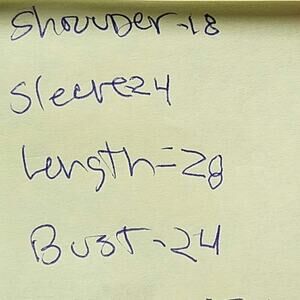 Shouder-18
Sleeve24
Length=28
Bust-24